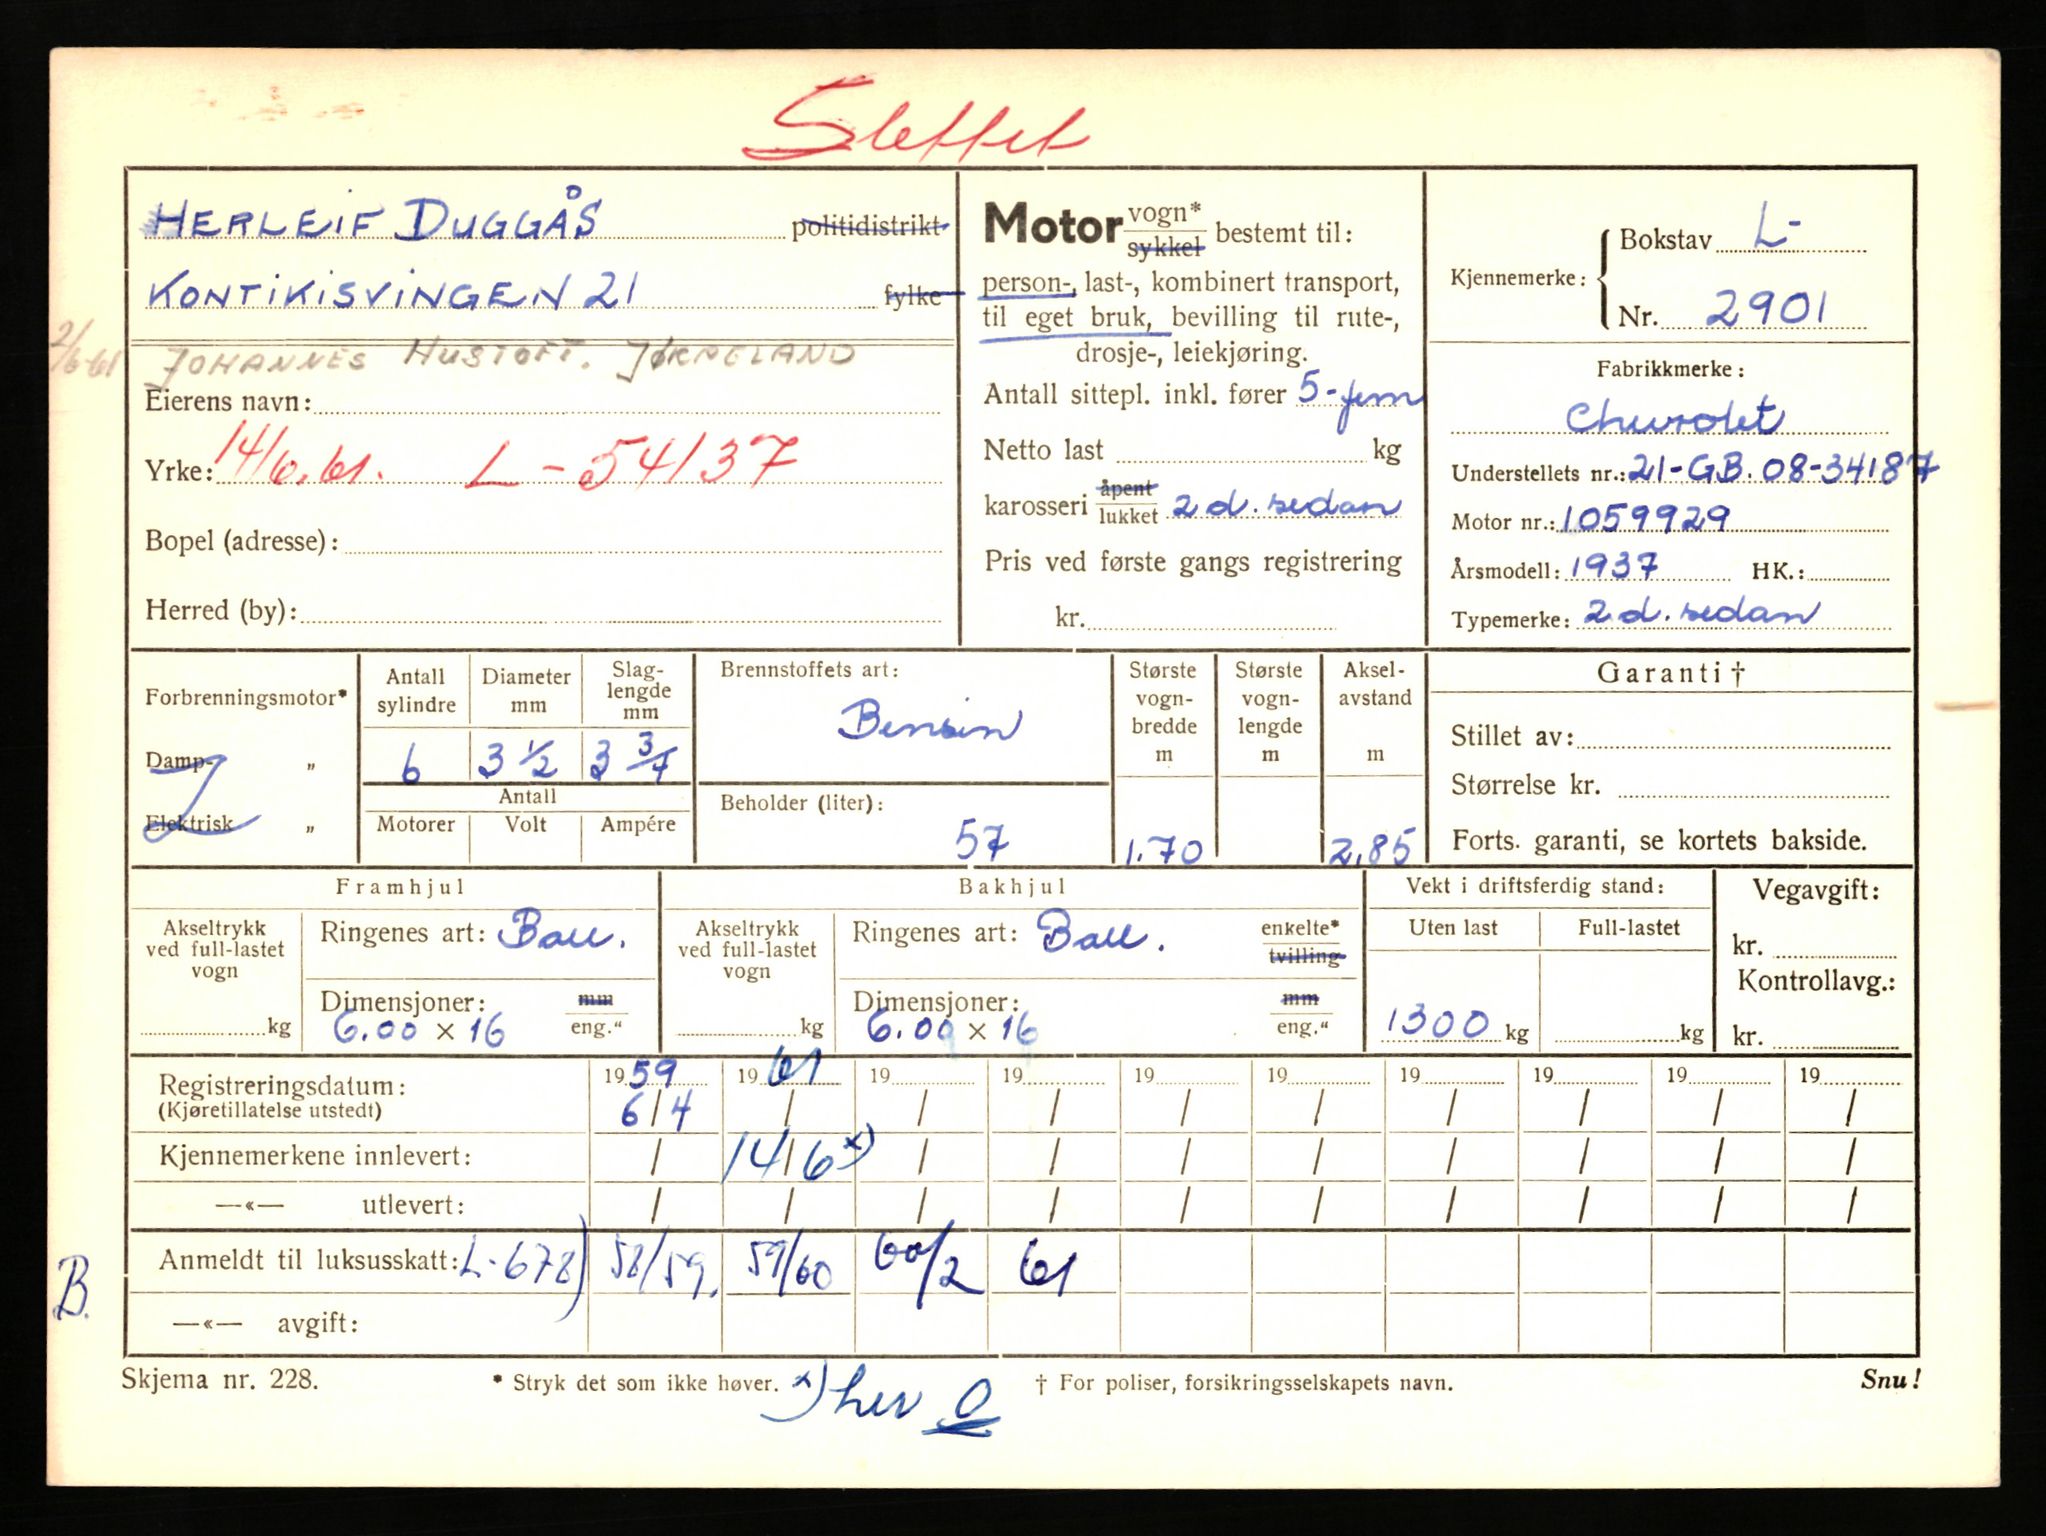 Slettet
HERLEIF DUGGÅS politidistrikt
KONTIKISVINGEN 21 fylke
2/6-61 JOHANNES HUSTOFT. JØRPELAND
Eierens navn:
Yrke: 14/6.61. L-54137
Bopel (adresse):
Herred (by):
Motor vogn* sykkel bestemt til:
person-, last-, kombinert transport,
til eget bruk, bevilling til rute-,
drosje-, leiekjøring.
Antall sittepl. inkl. fører 5-fem
Netto last kg
karosseri åpent lukket 2 d. sedan
Pris ved første gangs registrering
kr.
Kjennemerke: Bokstav L-
Nr. 2901
Fabrikkmerke:
Chevrolet
Understellets nr.: 21-GB. 08-34187
Motor nr.: 1059929
Årsmodell: 1937 HK.:
Typemerke: 2 d. sedan
Forbrenningsmotor*
Damp „
Elektrisk „
Antall sylindre Diameter mm Slag-lengde mm
6 3 1/2 3 3/7
Antall
Motorer Volt Ampére
Brennstoffets art:
Bensin
Beholder (liter):
57
Største vogn-bredde m
1.70
Største vogn-lengde m
Aksel-avstand m
2.85
Garanti †
Stillet av:
Størrelse kr.
Forts. garanti, se kortets bakside.
Framhjul
Akseltrykk ved full-lastet vogn
kg
Ringenes art: Ball.
Dimensjoner: mm
6.00 × 16 eng."
Bakhjul
Akseltrykk ved full-lastet vogn
kg
Ringenes art: Ball. enkelte* tvilling
Dimensjoner: mm
6.00 × 16 eng."
Vekt i driftsferdig stand:
Uten last Full-lastet
1300 kg kg
Vegavgift:
kr.
Kontrollavg.:
kr.
Registreringsdatum: 1959 1961 19 19 19 19 19 19 19 19
(Kjøretillatelse utstedt) 6/4 / / / / / / / / /
Kjennemerkene innlevert: / 14/6 x) / / / / / / / /
—«— utlevert: / / / / / / / / / /
B. Anmeldt til luksusskatt: L-678) 58/59. 59/60 60/2 61
—«— avgift:
Skjema nr. 228. * Stryk det som ikke høver. x) her 0 † For poliser, forsikringsselskapets navn. Snu!